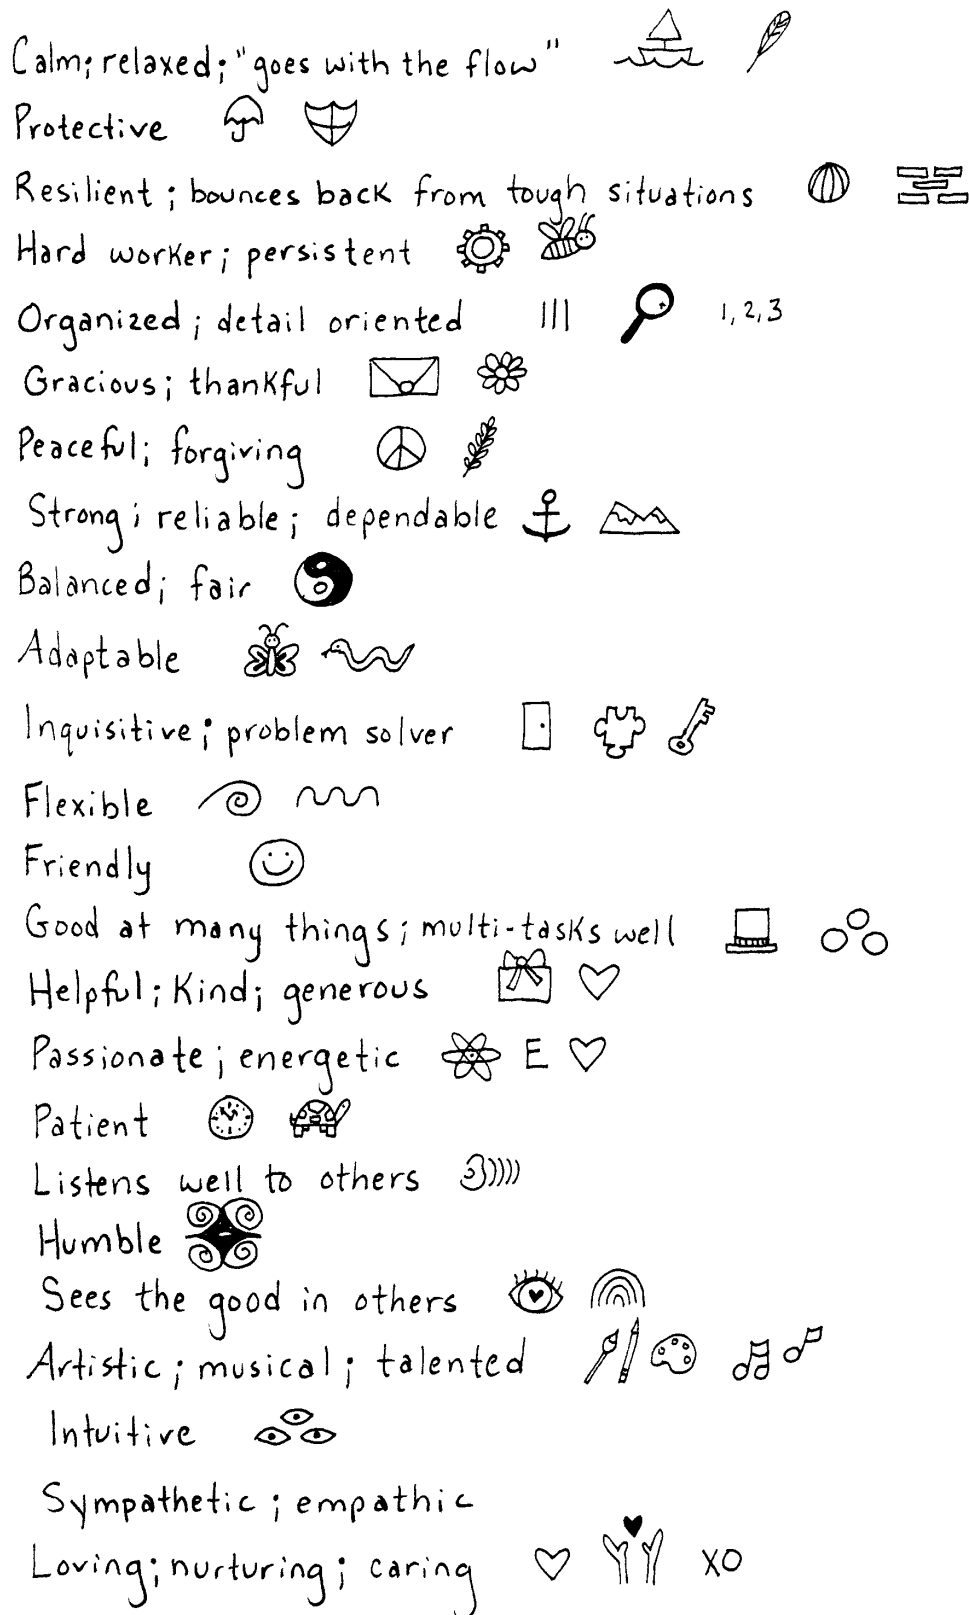 Calm; relaxed; "goes with the flow"
Protective
Resilient; bounces back from tough situations
Hard worker; persistent
Organized; detail oriented ||| 1, 2, 3
Gracious; thankful
Peaceful; forgiving
Strong; reliable; dependable
Balanced; fair
Adaptable
Inquisitive; problem solver
Flexible
Friendly
Good at many things; multi-tasks well
Helpful; Kind; generous
Passionate; energetic E
Patient
Listens well to others
Humble
Sees the good in others
Artistic; musical; talented
Intuitive
Sympathetic; empathic
Loving; nurturing; caring XO